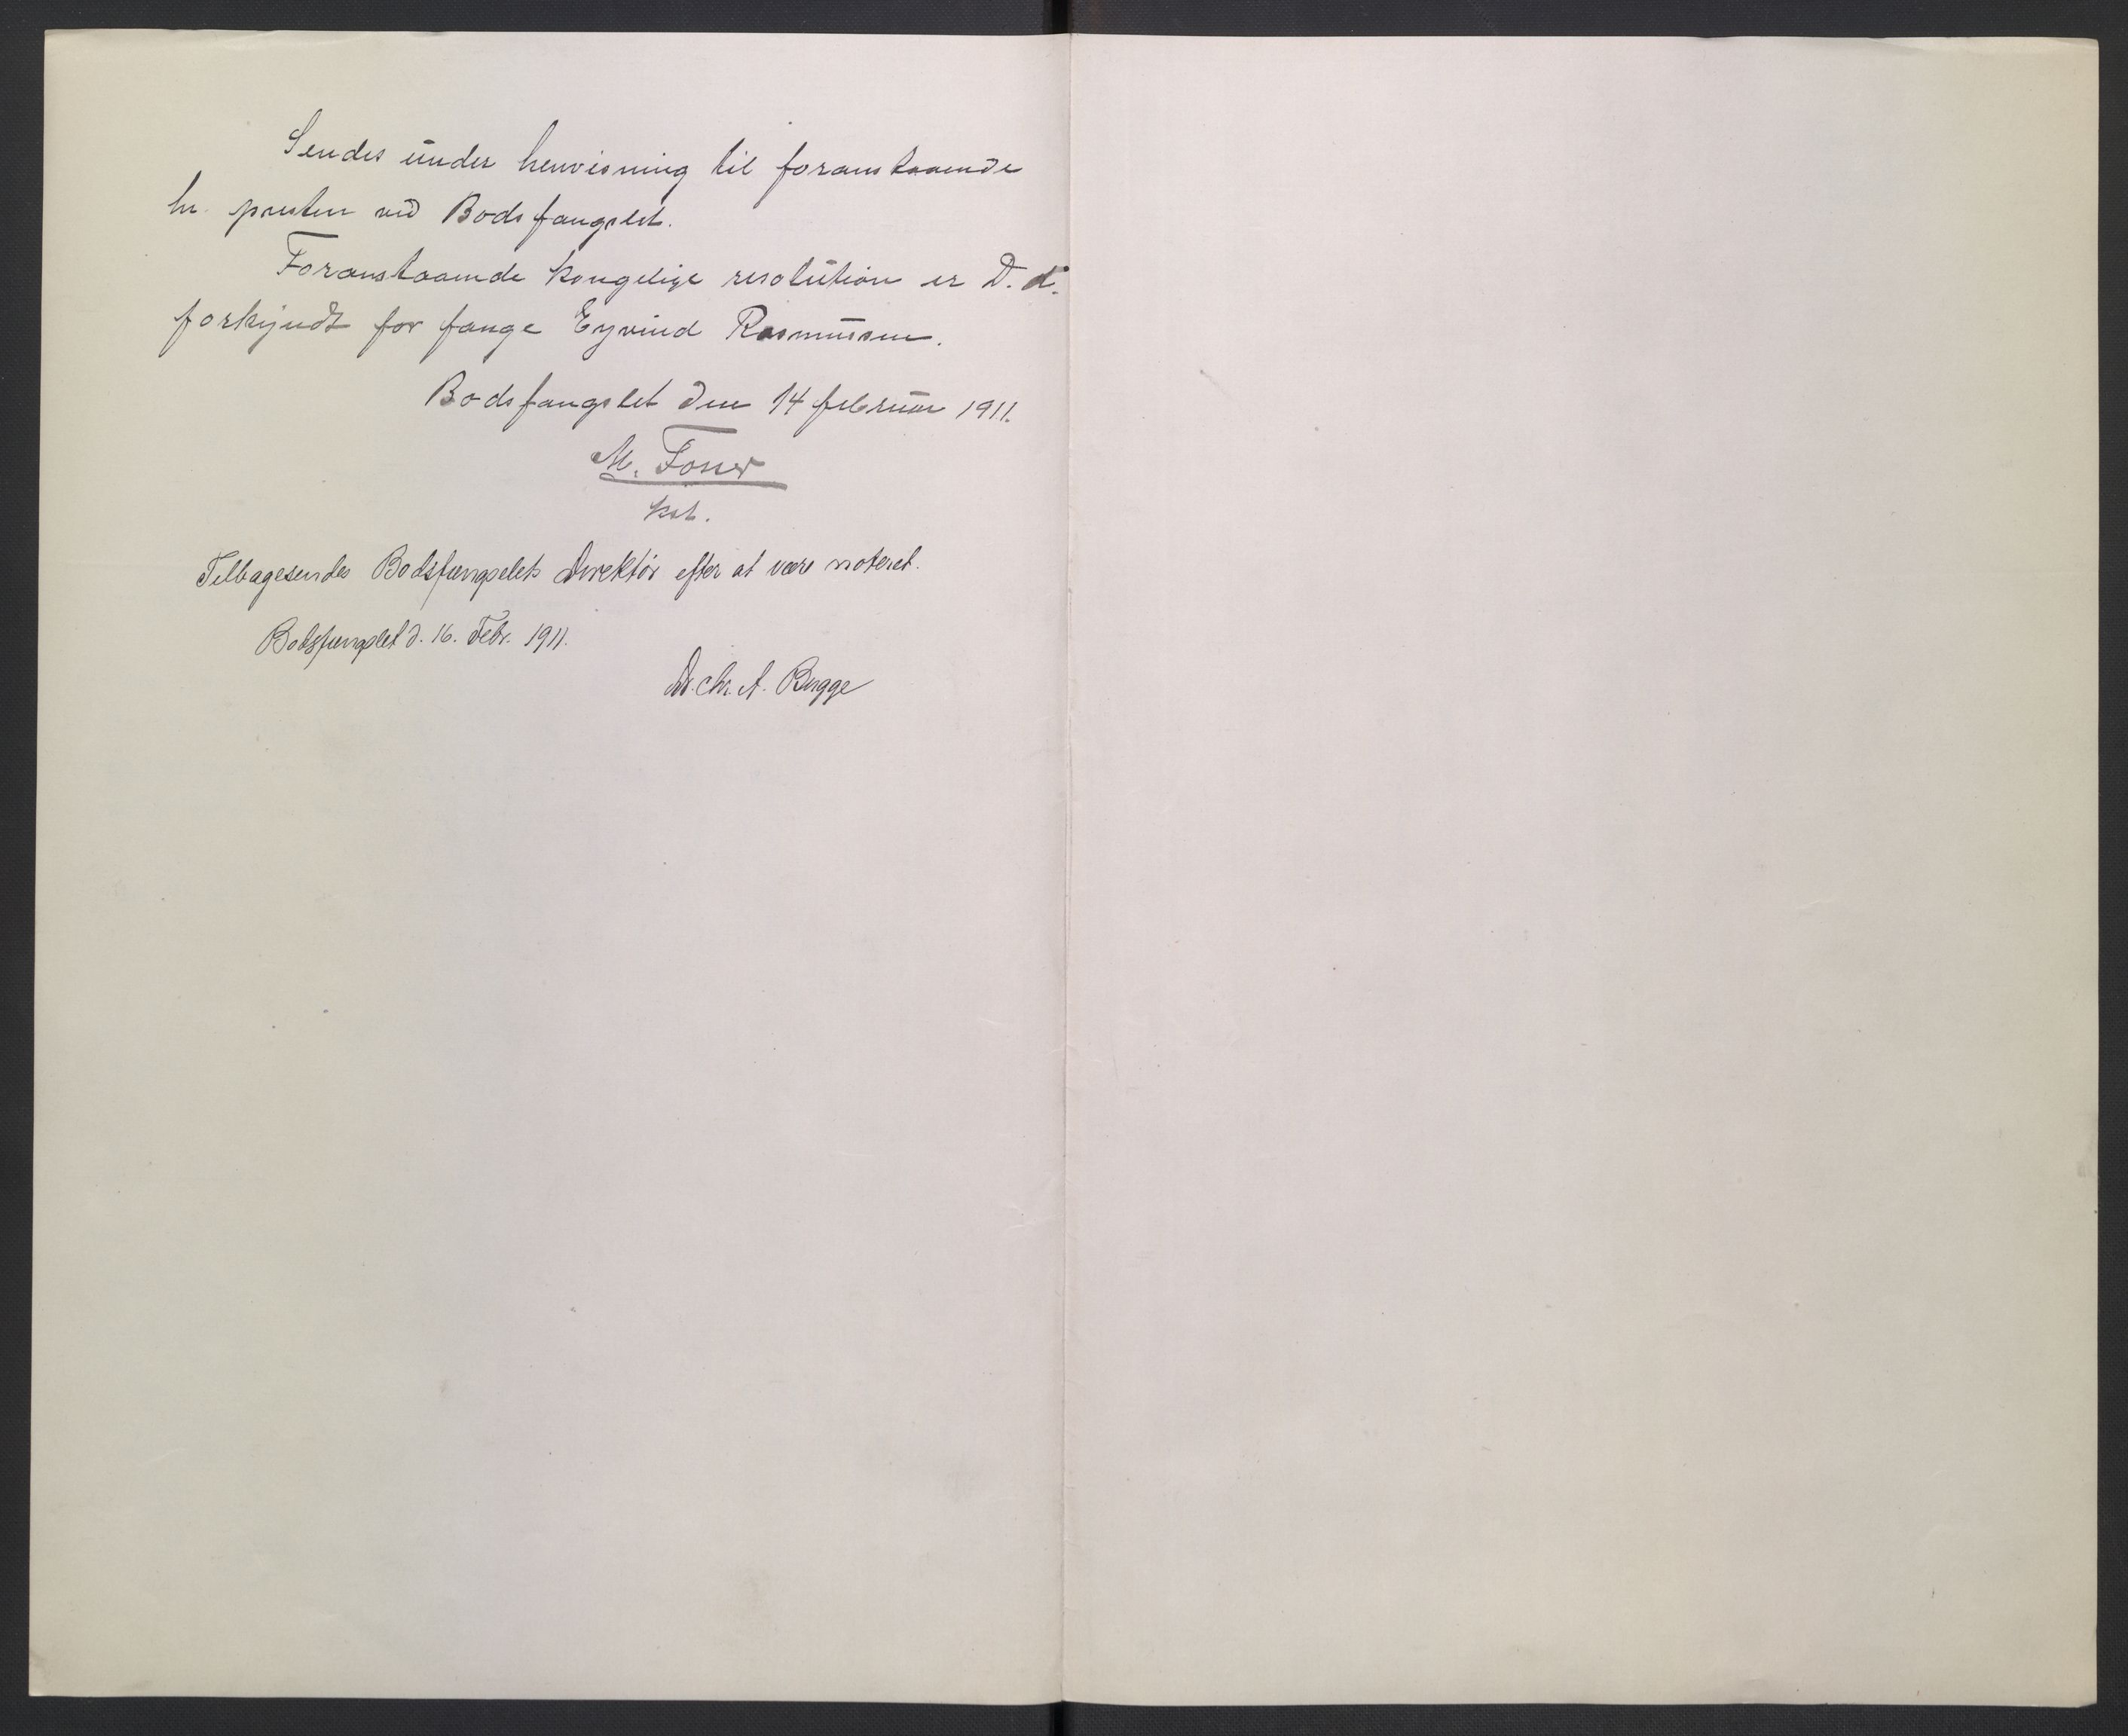 Sendes under henvisning til foranstaaende
hr. presten ved Bodsfængslet.
Foranstaaende kongelige resolution er D. d.
forkyndt for fange Eyvind Rasmussen.
Bodsfængslet den 14 februar 1911.
M. Fosser
kst.
Tilbagesendes Bodsfængslets Direktør efter at være noteret.
Bodsfængslet d. 16. Febr. 1911.
Dr. Chr. A. Bugge